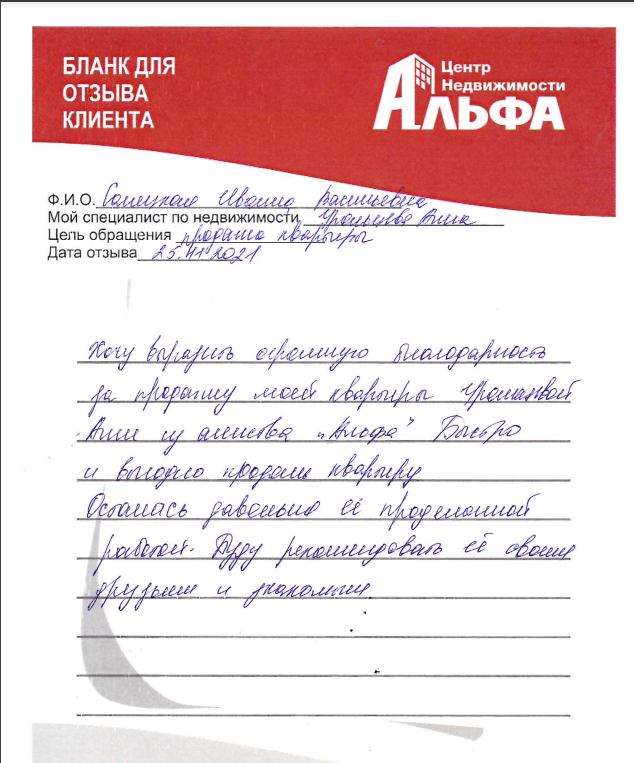 БЛАНК ДЛЯ
ОТЗЫВА
КЛИЕНТА
Центр
Недвижимости
АЛЬФА
Ф.И.О. Васильевна
Мой специалист по недвижимости Анна
Цель обращения продажа квартиры
Дата отзыва 25.11.2021
Хочу выразить огромную благодарность
за продажу моей квартиры
Анне из агенства „Альфа" Быстро
и выгодно продали квартиру
Осталась довольна её проделанной
работой. Буду рекомендовать её своим
друзьям и знакомым.